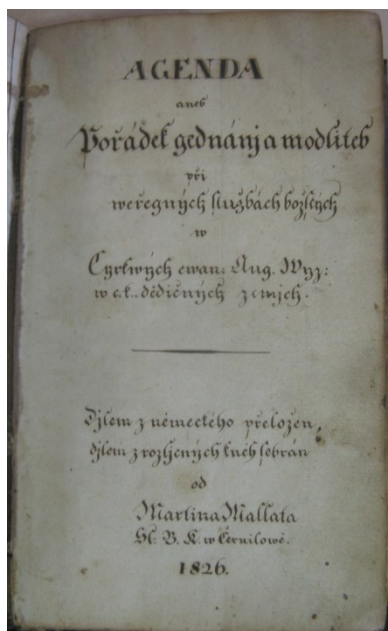 AGENDA
aneb
Pořádek gednánj a modliteb
při
weřegných službách božských
w
Cyrkwých ewan. Aug. Wyz:
w c.k. dědičných zemjch.
Djlem z německého přeložen,
djlem z rozljčných kněh sebrán
od
Martina Mallata
Sl: B. K. w Černilowě.
1826.